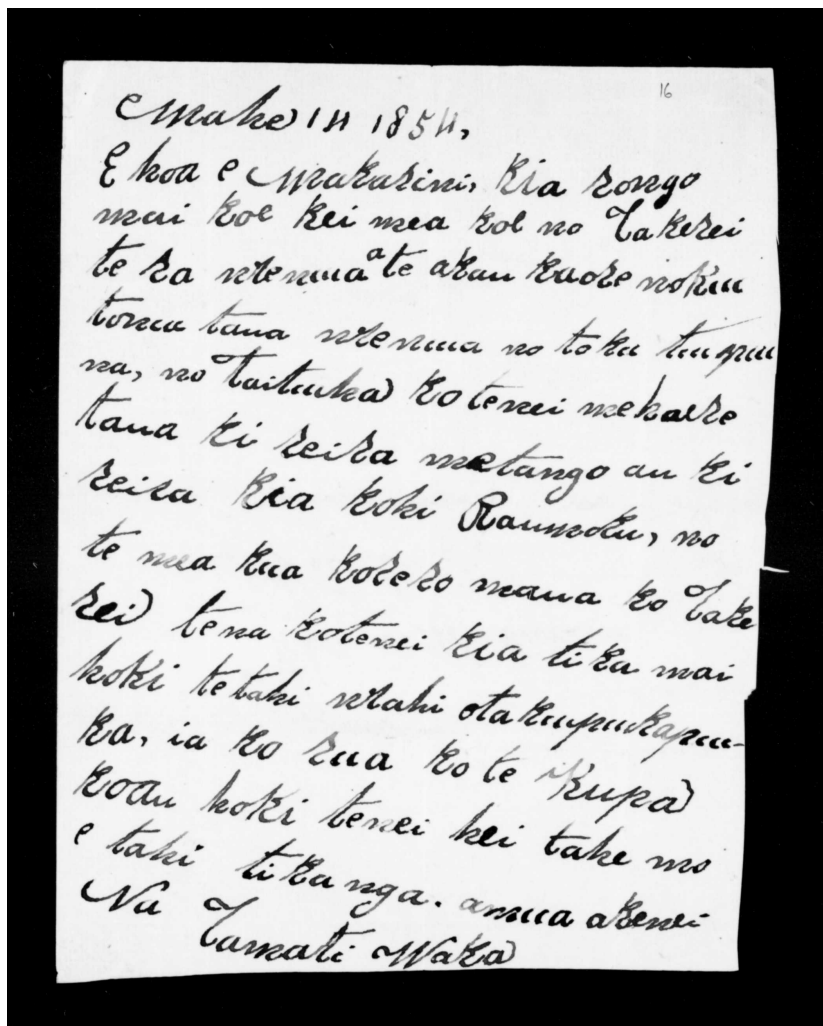 16
Mahe 14 1854,
E hoa e Makarini, kia rongo
mai koe kei mea koe no Takerei
te ra wenua a te arau kaore noku
tonu taua wenua no toku tupu
na, no Taituha ko tenei mehaere
taua ki reira metango au ki
reira kia hoki Raumoku, no
te mea kua korero maua ko Take
rei tena kotenei kia tika mai
hoki tetahi wahi otakupukapu-
ka, ia ko rua ko te Kupa
koau hoki tenei hei take mo
e tahi tikanga. amua akenei
Na Tamati Waka